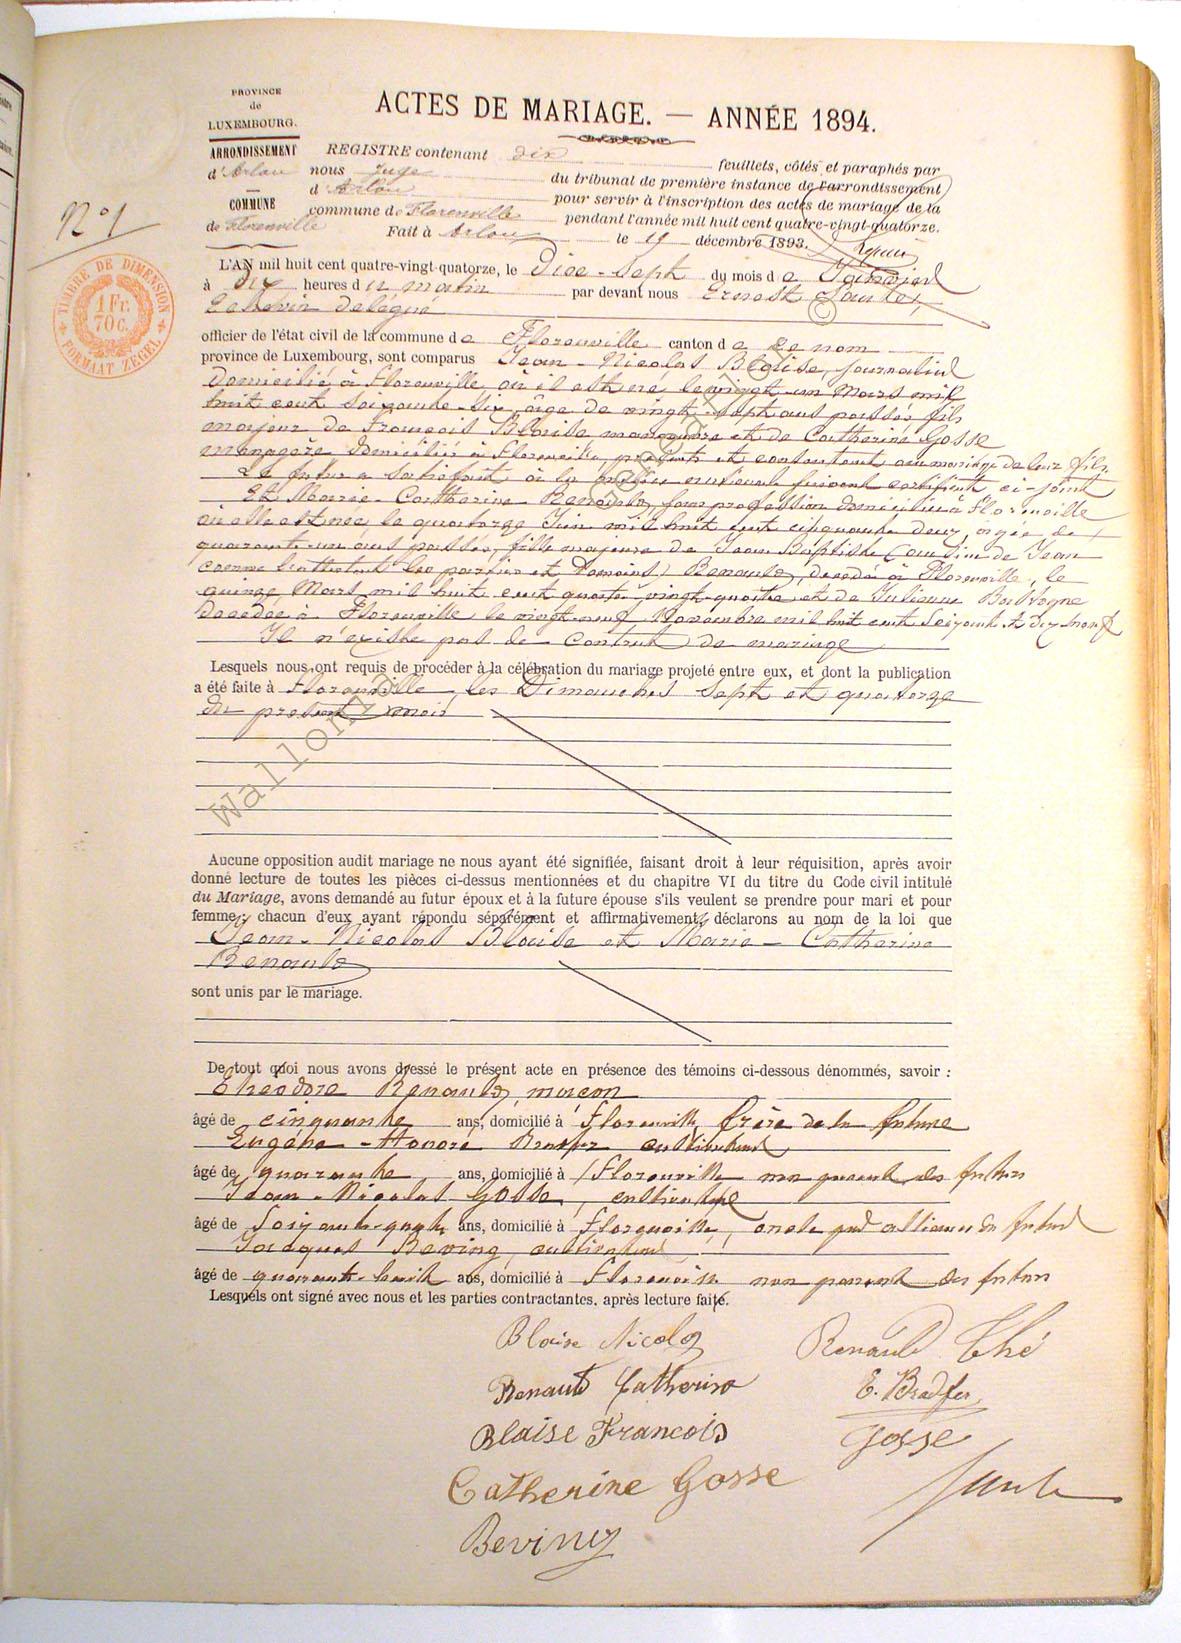 PROVINCE
de
LUXEMBOURG.
ARRONDISSEMENT
d'Arlon
COMMUNE
de Florenville
ACTES DE MARIAGE. — ANNÉE 1894.
REGISTRE contenant dix feuillets, côtés et paraphés par
nous Juge du tribunal de première instance de l'arrondissement
d'Arlon pour servir à l'inscription des actes de mariage de la
commune de Florenville pendant l'année mil huit cent quatre-vingt-quatorze.
Fait à Arlon le 19 décembre 1893.
N° 1
TIMBRE DE DIMENSION
1 Fr.
70 c.
FORMAAT ZEGEL
L'AN mil huit cent quatre-vingt-quatorze, le Dixe-Sept du mois de Janvier
à dix heures du matin par devant nous Ernest Saule,
Echevin délégué
officier de l'état civil de la commune de Florenville canton de ce nom
province de Luxembourg, sont comparus Jean-Nicolas Blaise, journalier
domicilié à Florenville où il est né le vingt-un Mars mil
huit cent Soixante-Six, âgé de vingt-sept ans passés, fils
majeur de François Blaise manœuvre et de Catherine Gosse
ménagère domiciliés à Florenville présents et consentant au mariage de leur fils.
Le futur a satisfait à la milice nationale suivant certificat ci-joint
Et Marie-Catherine Renauld, sans profession domiciliée à Florenville
où elle est née le quatorze Juin mil huit cent cinquante deux, âgée de
quarante-un ans passés, fille majeure de Jean Baptiste (au lieu de Jean
comme l'attestent les parties et témoins) Renauld, décédé à Florenville, le
quinze Mars mil huit cent quatre-vingt-quatre et de Julienne Bastogne
décédée à Florenville le vingt-neuf Novembre mil huit cent Soixante et dix neuf
Il n'existe pas de Contrat de mariage
Lesquels nous ont requis de procéder à la célébration du mariage projeté entre eux, et dont la publication
a été faite à Florenville les Dimanches Sept et quatorze
du présent mois
Aucune opposition audit mariage ne nous ayant été signifiée, faisant droit à leur réquisition, après avoir
donné lecture de toutes les pièces ci-dessus mentionnées et du chapitre VI du titre du Code civil intitulé
du Mariage, avons demandé au futur époux et à la future épouse s'ils veulent se prendre pour mari et pour
femme; chacun d'eux ayant répondu séparément et affirmativement, déclarons au nom de la loi que
Jean-Nicolas Blaise et Marie-Catherine
Renauld
sont unis par le mariage.
De tout quoi nous avons dressé le présent acte en présence des témoins ci-dessous dénommés, savoir :
Théodore Renauld, maçon
âgé de cinquante ans, domicilié à Florenville, frère de la future
Eugène-Honoré Bradfer cultivateur
âgé de quarante ans, domicilié à Florenville non parent des futurs
Jean-Nicolas Gosse, cultivateur
âgé de Soixante-quatre ans, domicilié à Florenville, oncle par alliance du futur
Jacques Beving, cultivateur
âgé de quarante-huit ans, domicilié à Florenville non parent des futurs
Lesquels ont signé avec nous et les parties contractantes, après lecture faite.
Blaise Nicolas Renauld Thé
Renauld Catherine E. Bradfer
Blaise Francois Gosse
Catherine Gosse Saule
Beving